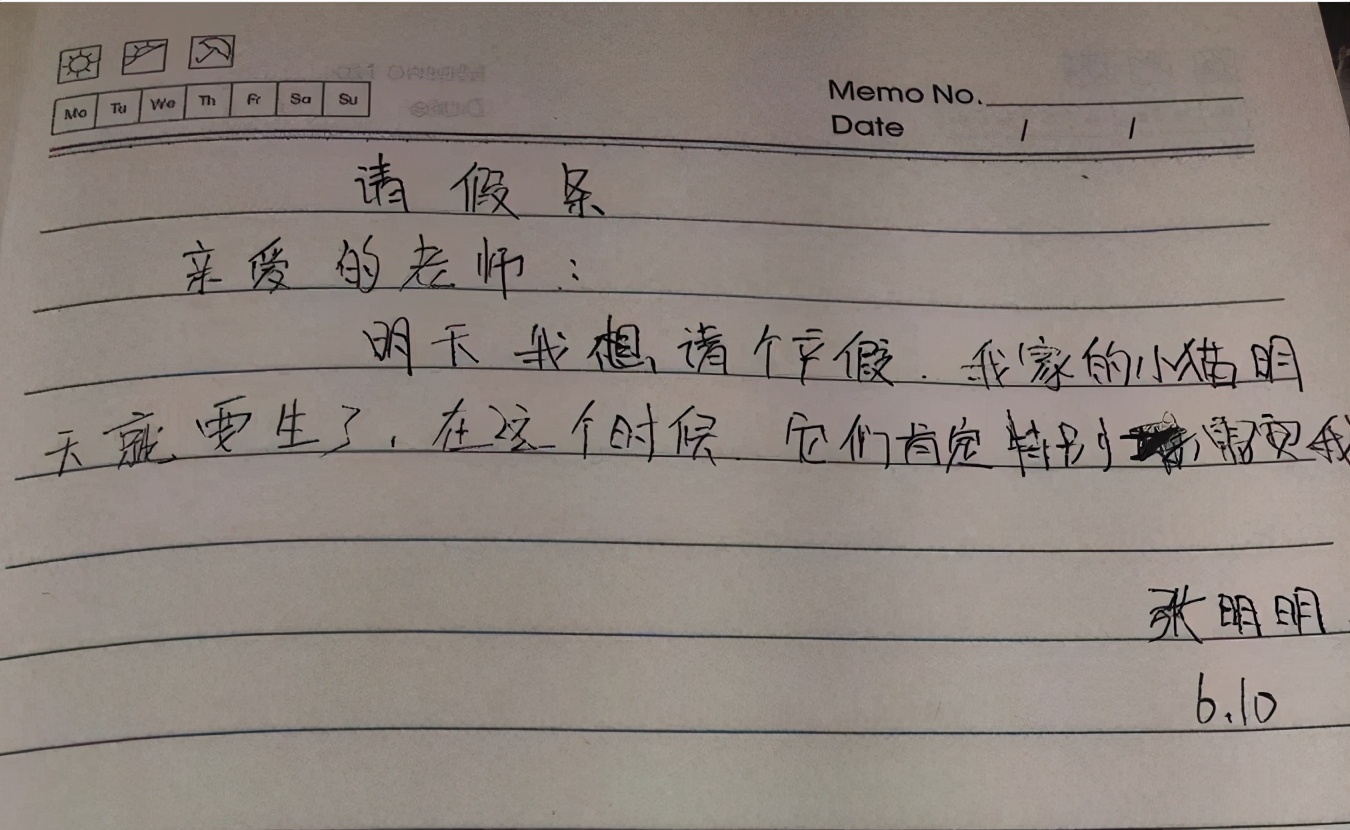 Mo Tu We Th Fr Sa Su
Memo No.
Date / /
请假条
亲爱的老师：
明天我想请个产假．我家的小猫明
天就要生了，在这个时候．它们肯定特别需要我
张明明
6.10